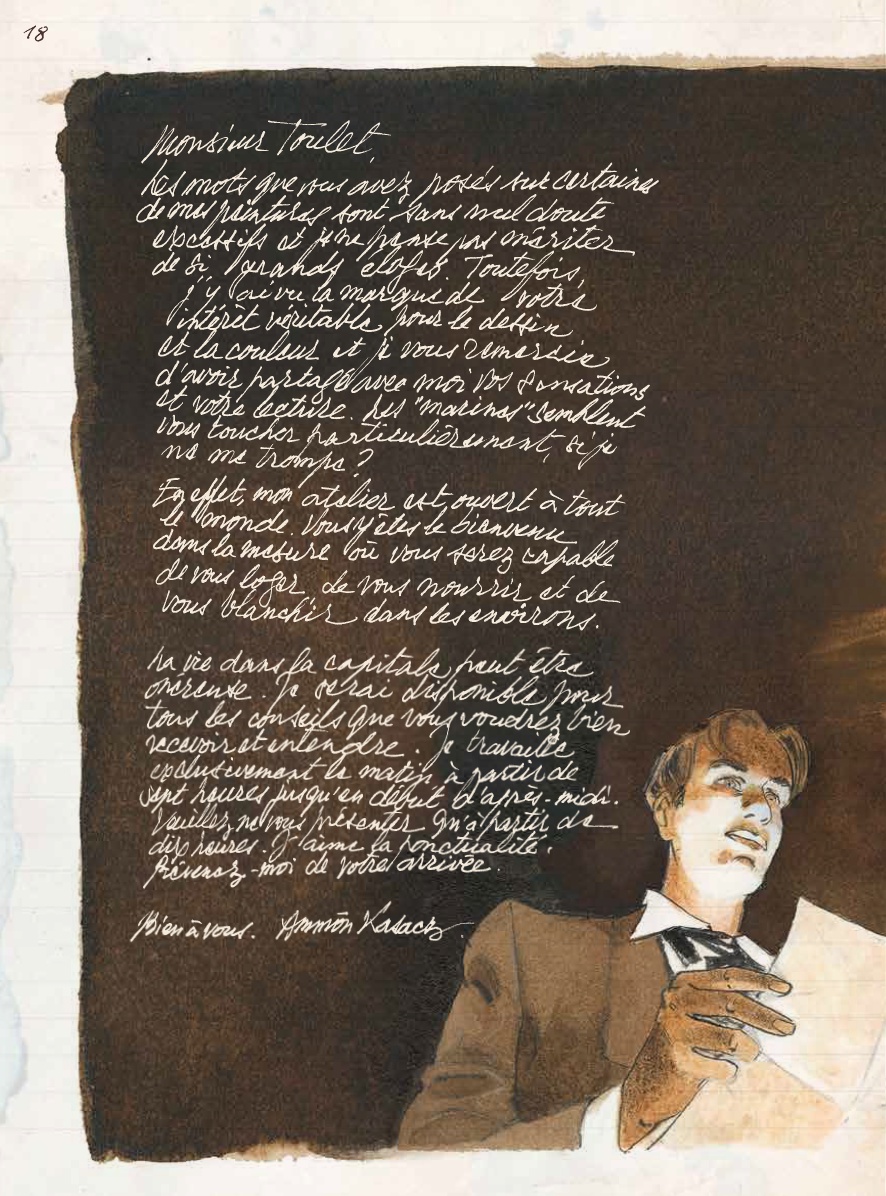 18
Monsieur Toulet,
Les mots que vous avez posés sur certaines
de mes peintures sont sans nul doute
excessifs et je ne pense pas mériter
de si grands éloges. Toutefois,
j'y ai vu la marque de votre
intérêt véritable pour le dessin
et la couleur et je vous remercie
d'avoir partagé avec moi vos sensations
et votre lecture. Les "marines" semblent
vous toucher particulièrement, si je
ne me trompe ?
En effet, mon atelier est ouvert à tout
le monde. Vous y êtes le bienvenu
dans la mesure où vous serez capable
de vous loger, de vous nourrir et de
vous blanchir dans les environs.
La vie dans la capitale peut être
onéreuse. Je serai disponible pour
tous les conseils que vous voudrez bien
recevoir et entendre. Je travaille
exclusivement le matin à partir de
sept heures jusqu'en début d'après-midi.
Veuillez ne vous présenter qu'à partir de
dix heures. J'aime la ponctualité.
Prévenez-moi de votre arrivée.
Bien à vous. Ammôn Kasacz.